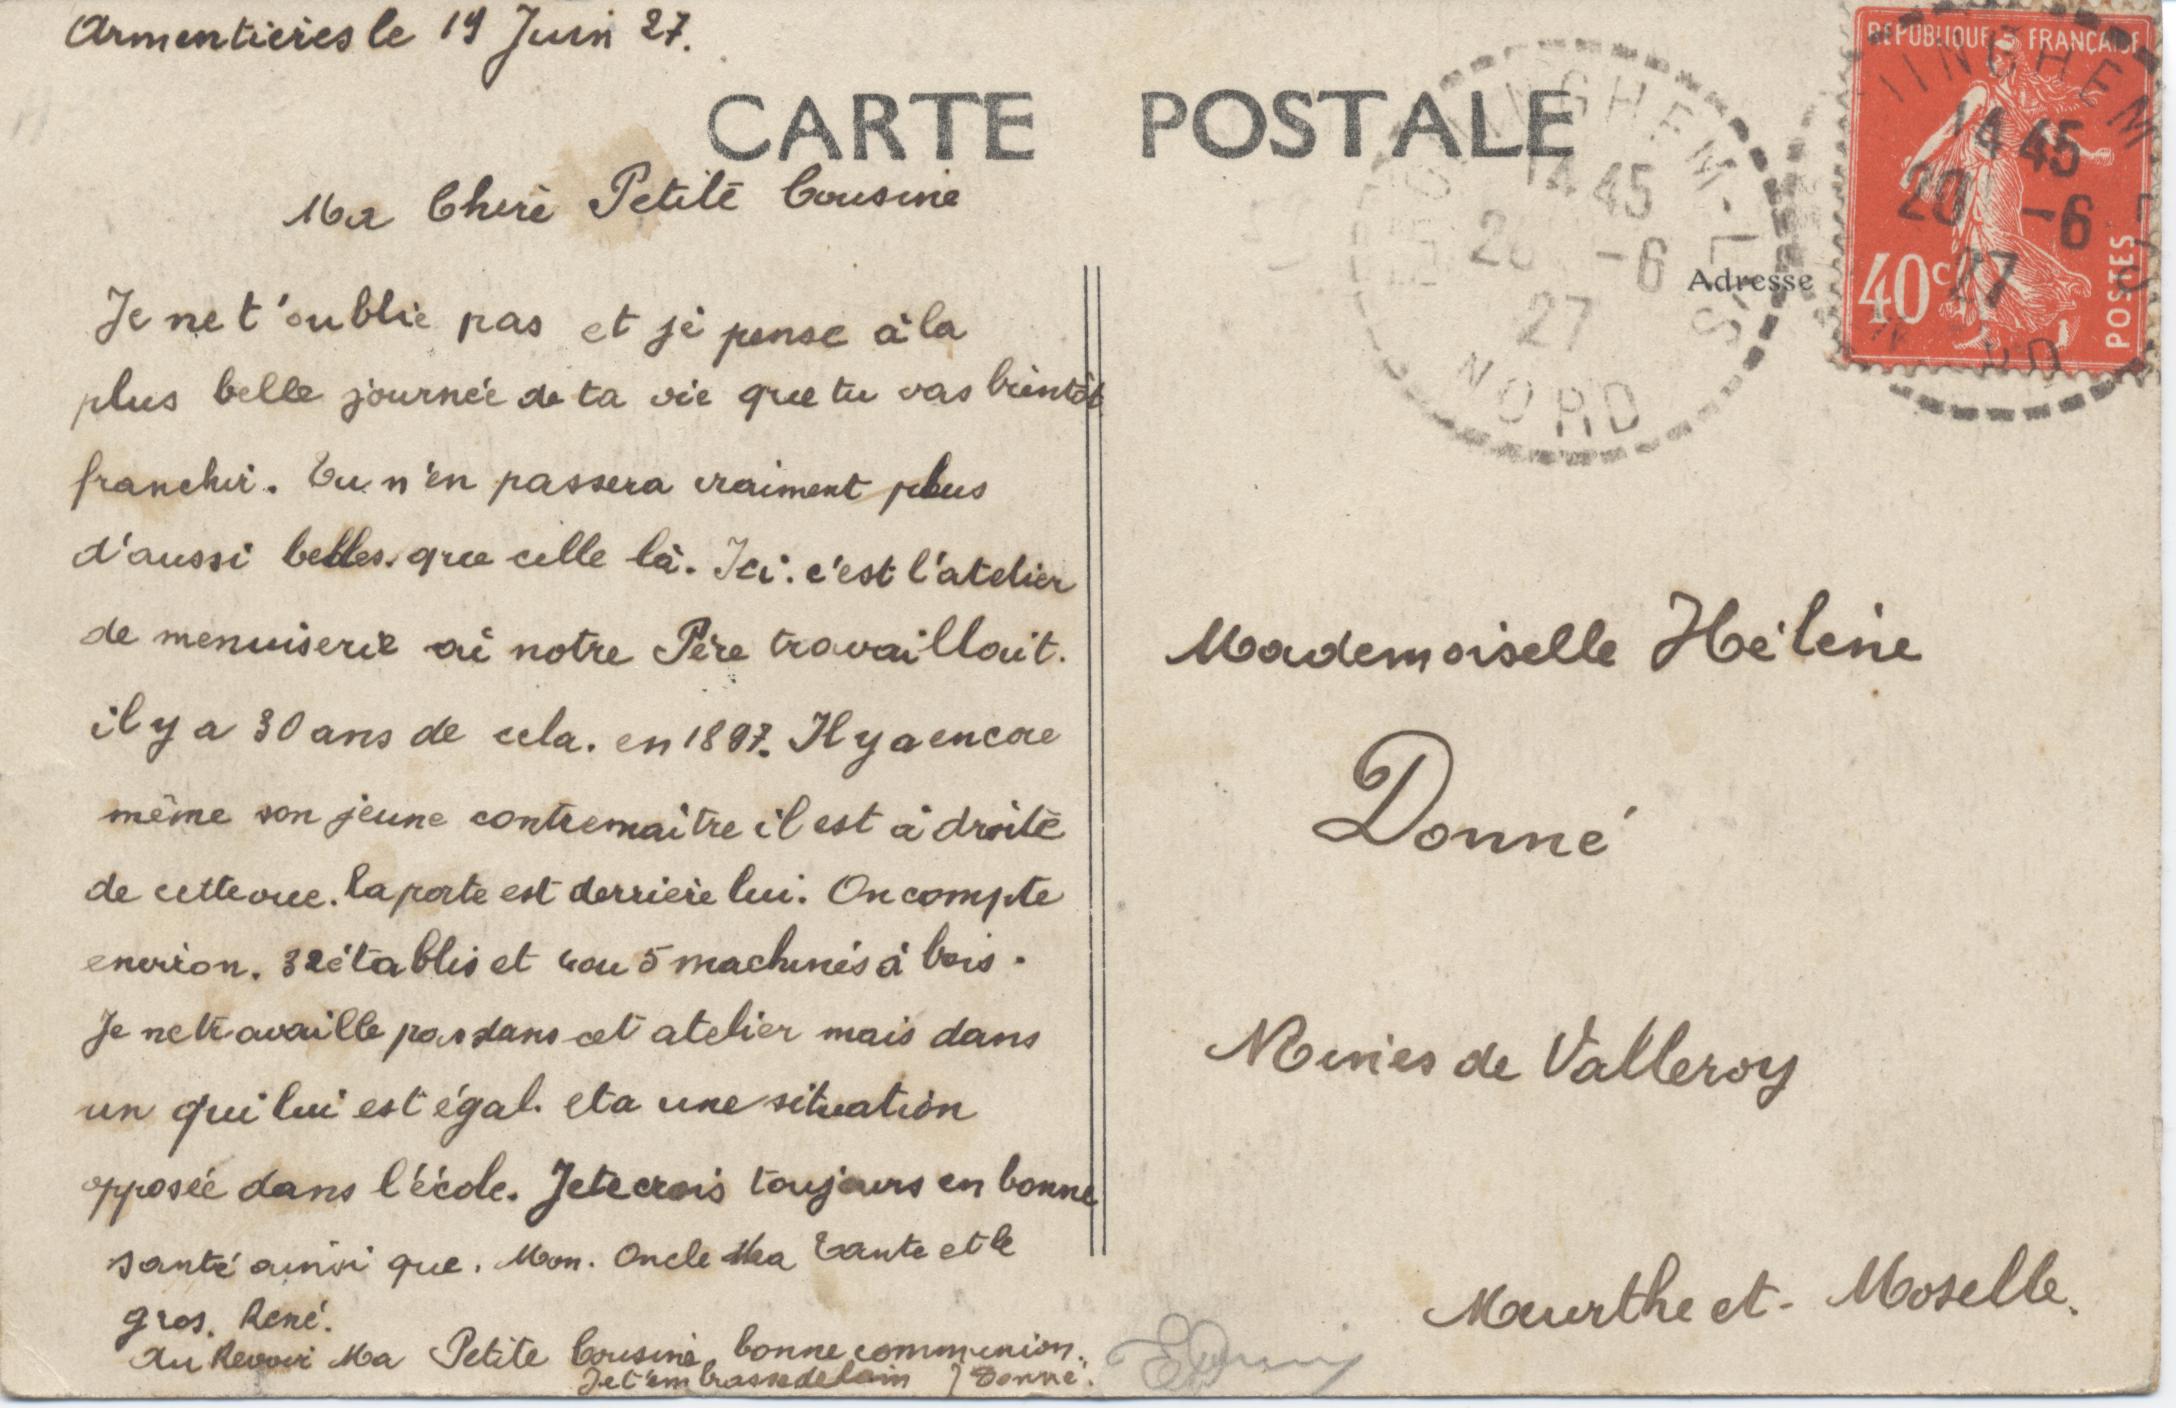 Armentières le 19 Juin 27.
CARTE POSTALE
Ma Chère Petite Cousine
Je ne t'oublie pas et je pense à la
plus belle journée de ta vie que tu vas bientôt
franchir. Tu n'en passera vraiment plus
d'aussi belles que celle là. Ici c'est l'atelier
de menuiserie où notre Père travaillait.
il y a 30 ans de cela. en 1897. Il y a encore
même son jeune contremaitre il est à droite
de cette vue. la porte est derrière lui. On compte
environ. 32 établis et 4 ou 5 machines à bois.
Je ne travaille pas dans cet atelier mais dans
un qui lui est égal. et a une situation
opposée dans l'école. Je te crois toujours en bonne
santé ainsi que. Mon. Oncle Ma Tante et le
gros. René.
Au Revoir Ma Petite Cousine, bonne communion.
Je t'embrasse de loin J Donné.
INGHEM-L
S
14 45
20 -6
27
NORD
REPUBLIQUE FRANÇAISE
INGHEM
14 45
20 -6
27
40c
POSTES
Adresse
Mademoiselle Hélène
Donné
Mines de Valleroy
Meurthe et - Moselle.